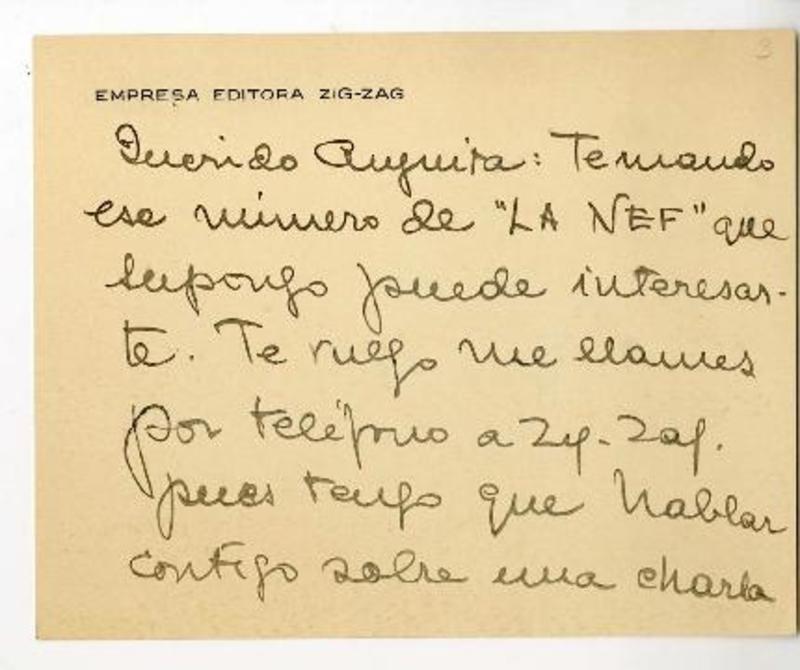 3
EMPRESA EDITORA ZIG-ZAG
Querido Anguita: Te mando
ese número de "LA NEF" que
supongo puede interesar-
te. Te ruego me llames
por teléfono a Zig-Zag.
pues tengo que hablar
contigo sobre una charla